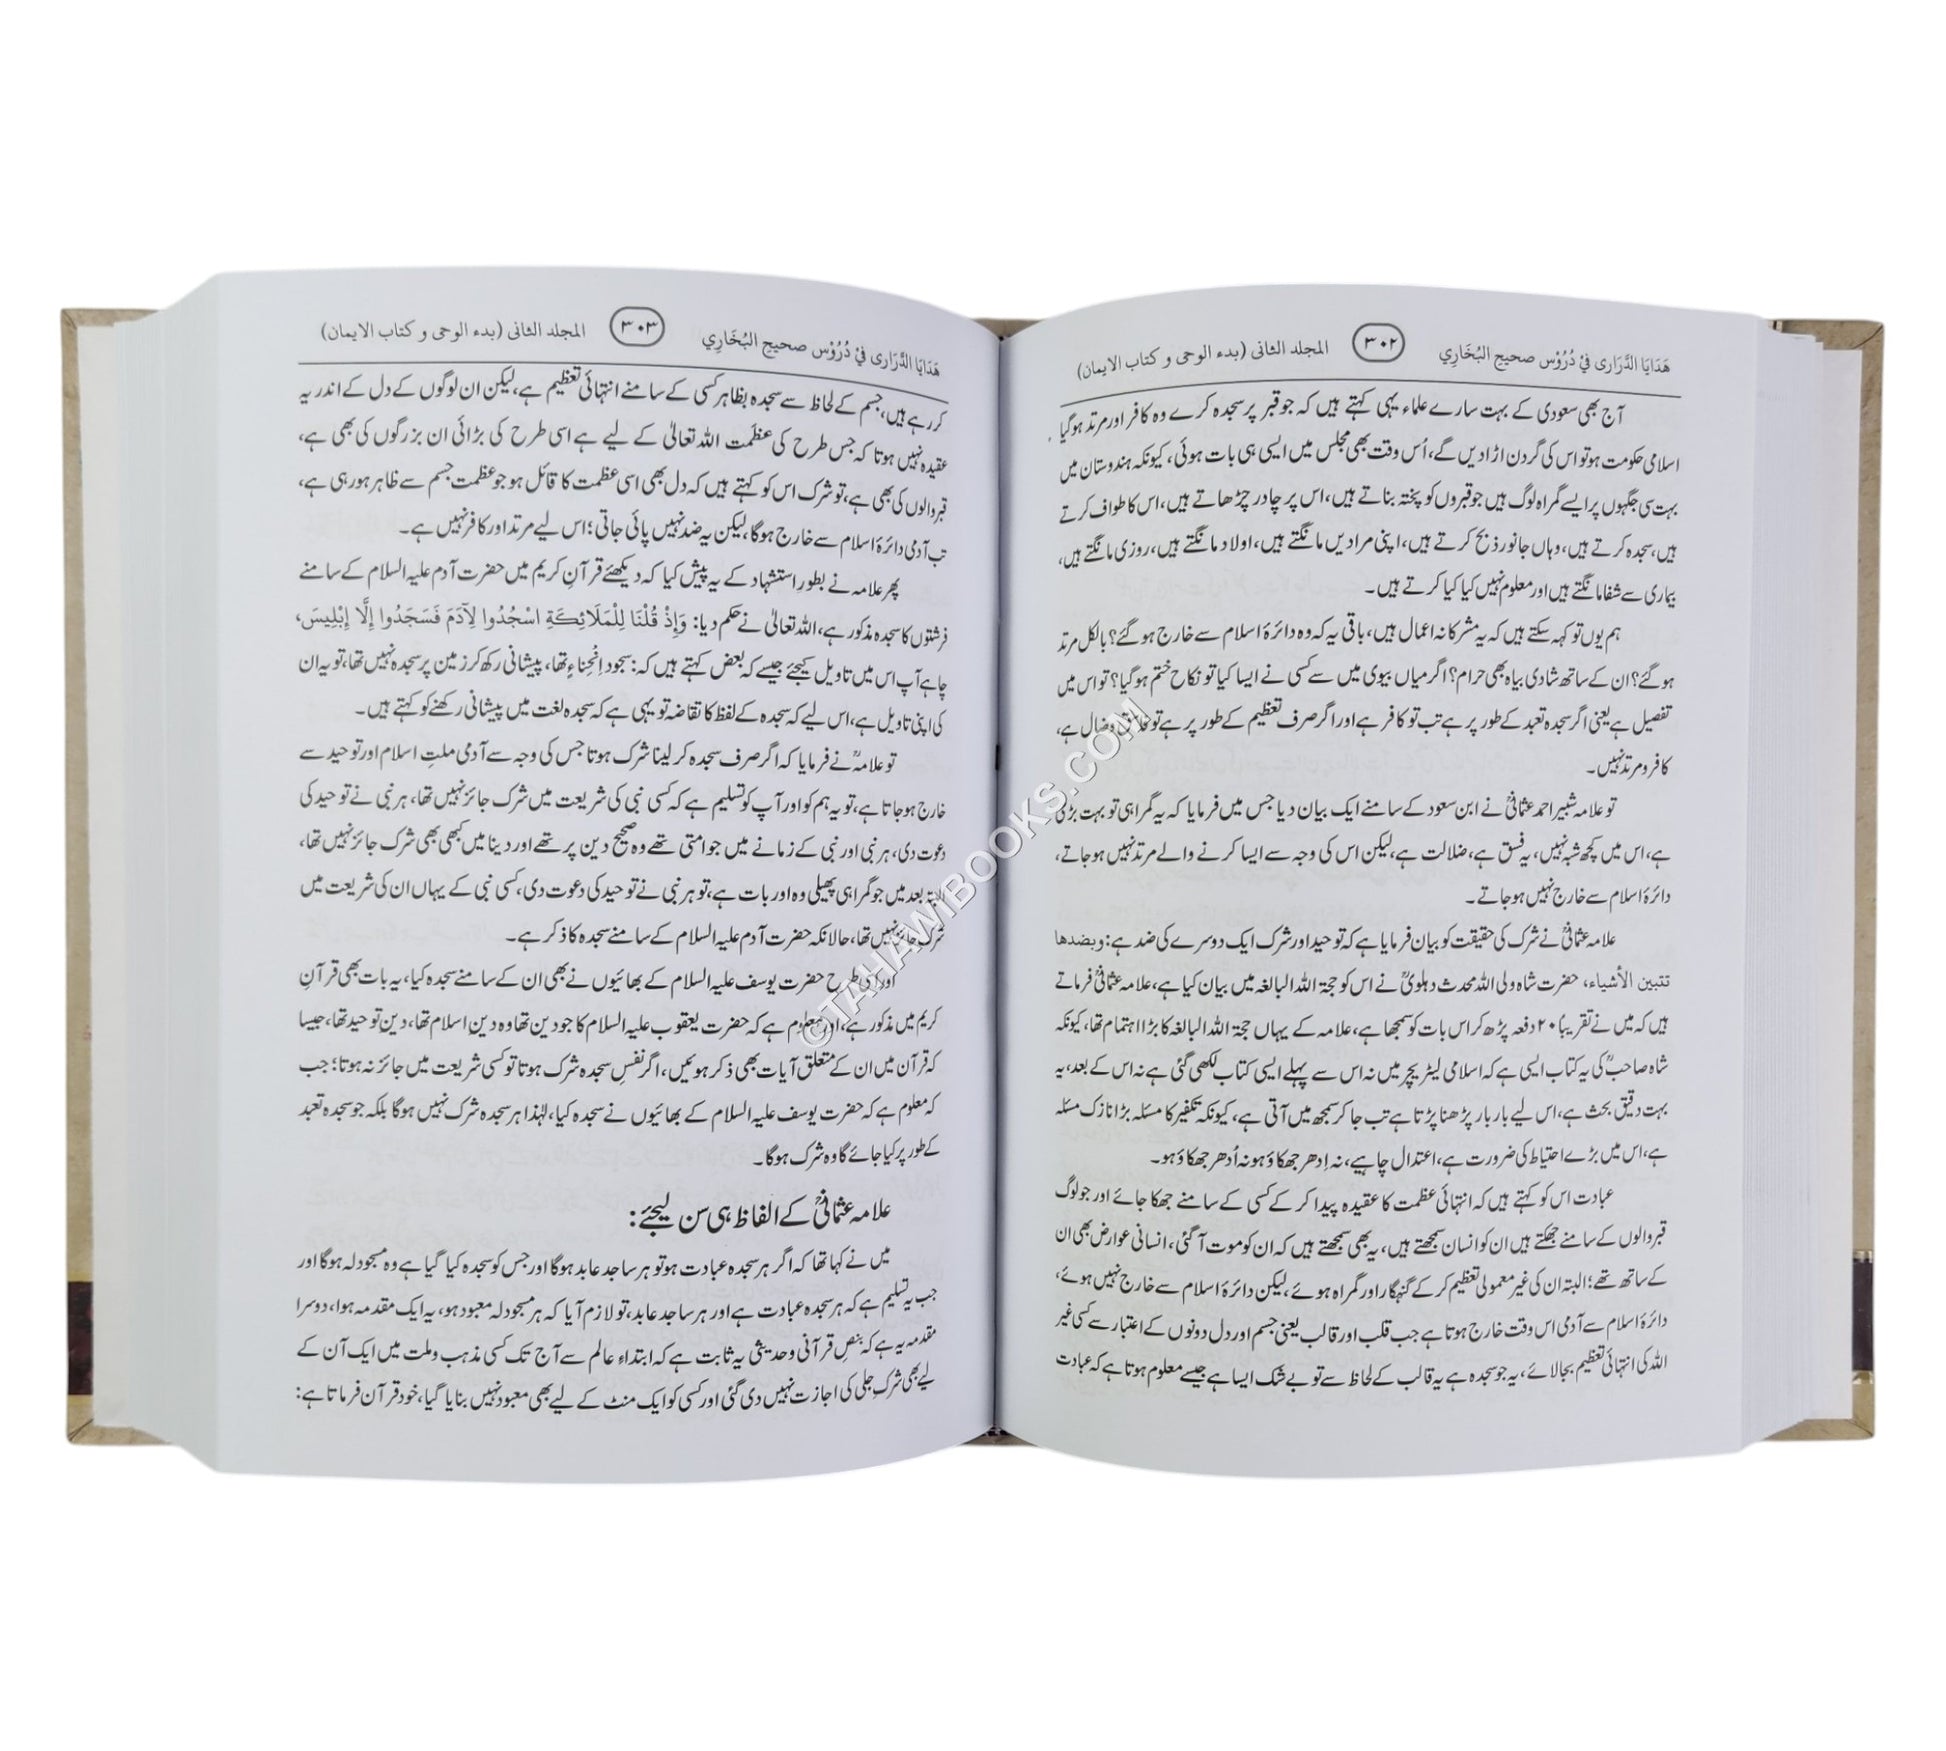 هَدَايَا الدَّرَارِى فِيْ دُرُوْس صحيح البُخَارِي ۳۰۲ المجلد الثانی (بدء الوحی و کتاب الایمان)
آج بھی سعودی کے بہت سارے علماء یہی کہتے ہیں کہ جو قبر پر سجدہ کرے وہ کافر اور مرتد ہوگیا
اسلامی حکومت ہو تو اس کی گردن اڑا دیں گے، اُس وقت بھی مجلس میں ایسی ہی بات ہوئی، کیونکہ ہندوستان میں
بہت سی جگہوں پر ایسے گمراہ لوگ ہیں جو قبروں کو پختہ بناتے ہیں، اس پر چادر چڑھاتے ہیں، اس کا طواف کرتے
ہیں، سجدہ کرتے ہیں، وہاں جانور ذبح کرتے ہیں، اپنی مرادیں مانگتے ہیں، اولاد مانگتے ہیں، روزی مانگتے ہیں،
بیماری سے شفا مانگتے ہیں اور معلوم نہیں کیا کیا کرتے ہیں۔
ہم یوں تو کہہ سکتے ہیں کہ یہ مشرکانہ اعمال ہیں، باقی یہ کہ وہ دائرۂ اسلام سے خارج ہوگئے؟ بالکل مرتد
ہوگئے؟ ان کے ساتھ شادی بیاہ بھی حرام؟ اگر میاں بیوی میں سے کسی نے ایسا کیا تو نکاح ختم ہوگیا؟ تو اس میں
تفصیل ہے یعنی اگر سجدہ تعبد کے طور پر ہے تب تو کافر ہے اور اگر صرف تعظیم کے طور پر ہے تو فاسق وضال ہے،
کافر و مرتد نہیں۔
تو علامہ شبیر احمد عثمانیؒ نے ابن سعود کے سامنے ایک بیان دیا جس میں فرمایا کہ یہ گمراہی تو بہت بڑی
ہے، اس میں کچھ شبہ نہیں، یہ فسق ہے، ضلالت ہے، لیکن اس کی وجہ سے ایسا کرنے والے مرتد نہیں ہوجاتے،
دائرۂ اسلام سے خارج نہیں ہوجاتے۔
علامہ عثمانیؒ نے شرک کی حقیقت کو بیان فرمایا ہے کہ توحید اور شرک ایک دوسرے کی ضد ہے: وبضدها
تتبين الأشياء، حضرت شاہ ولی اللہ محدث دہلویؒ نے اس کو حجۃ اللہ البالغہ میں بیان کیا ہے، علامہ عثمانیؒ فرماتے
ہیں کہ میں نے تقریباً ۲۰ دفعہ پڑھ کر اس بات کو سمجھا ہے، علامہ کے یہاں حجۃ اللہ البالغہ کا بڑا اہتمام تھا، کیونکہ
شاہ صاحبؒ کی یہ کتاب ایسی ہے کہ اسلامی لیٹریچر میں نہ اس سے پہلے ایسی کتاب لکھی گئی ہے نہ اس کے بعد، یہ
بہت دقیق بحث ہے، اس لیے بار بار پڑھنا پڑتا ہے تب جا کر سمجھ میں آتی ہے، کیونکہ تکفیر کا مسئلہ بڑا نازک مسئلہ
ہے، اس میں بڑے احتیاط کی ضرورت ہے، اعتدال چاہیے، نہ اِدھر جھکاؤ ہو نہ اُدھر جھکاؤ ہو۔
عبادت اس کو کہتے ہیں کہ انتہائی عظمت کا عقیدہ پیدا کر کے کسی کے سامنے جھکا جائے اور جو لوگ
قبر والوں کے سامنے جھکتے ہیں ان کو انسان سمجھتے ہیں، یہ بھی سمجھتے ہیں کہ ان کو موت آگئی، انسانی عوارض بھی ان
کے ساتھ تھے؛ البتہ ان کی غیر معمولی تعظیم کر کے گنہگار اور گمراہ ہوئے، لیکن دائرۂ اسلام سے خارج نہیں ہوئے،
دائرۂ اسلام سے آدمی اس وقت خارج ہوتا ہے جب قلب اور قالب یعنی جسم اور دل دونوں کے اعتبار سے کسی غیر
اللہ کی انتہائی تعظیم بجالائے، یہ جو سجدہ ہے یہ قالب کے لحاظ سے تو بے شک ایسا ہے جیسے معلوم ہوتا ہے کہ عبادت
هَدَايَا الدَّرَارِى فِيْ دُرُوْس صحيح البُخَارِي ۳۰۳ المجلد الثانی (بدء الوحی و کتاب الایمان)
کر رہے ہیں، جسم کے لحاظ سے سجدہ بظاہر کسی کے سامنے انتہائی تعظیم ہے، لیکن ان لوگوں کے دل کے اندر یہ
عقیدہ نہیں ہوتا کہ جس طرح کی عظمت اللہ تعالیٰ کے لیے ہے اسی طرح کی بڑائی ان بزرگوں کی بھی ہے،
قبر والوں کی بھی ہے، تو شرک اس کو کہتے ہیں کہ دل بھی اسی عظمت کا قائل ہو جو عظمت جسم سے ظاہر ہو رہی ہے،
تب آدمی دائرۂ اسلام سے خارج ہوگا، لیکن یہ ضد نہیں پائی جاتی؛ اس لیے مرتد اور کافر نہیں ہے۔
پھر علامہ نے بطور استشہاد کے یہ پیش کیا کہ دیکھئے قرآنِ کریم میں حضرت آدم علیہ السلام کے سامنے
فرشتوں کا سجدہ مذکور ہے، اللہ تعالیٰ نے حکم دیا: وَإِذْ قُلْنَا لِلْمَلَائِكَةِ اسْجُدُوا لِآدَمَ فَسَجَدُوا إِلَّا إِبْلِيسَ،
چاہے آپ اس میں تاویل کیجئے جیسے کہ بعض کہتے ہیں کہ: سجود اِنْحِناء تھا، پیشانی رکھ کر زمین پر سجدہ نہیں تھا، تو یہ ان
کی اپنی تاویل ہے، اس لیے کہ سجدہ کے لفظ کا تقاضہ تو یہی ہے کہ سجدہ لغت میں پیشانی رکھنے کو کہتے ہیں۔
تو علامہؒ نے فرمایا کہ اگر صرف سجدہ کر لینا شرک ہوتا جس کی وجہ سے آدمی ملتِ اسلام اور توحید سے
خارج ہوجاتا ہے، تو یہ ہم کو اور آپ کو تسلیم ہے کہ کسی نبی کی شریعت میں شرک جائز نہیں تھا، ہر نبی نے توحید کی
دعوت دی، ہر نبی اور نبی کے زمانے میں جو امتی تھے وہ صحیح دین پر تھے اور دینا میں کبھی بھی شرک جائز نہیں تھا،
البتہ بعد میں جو گمراہی پھیلی وہ اور بات ہے، تو ہر نبی نے توحید کی دعوت دی، کسی نبی کے یہاں ان کی شریعت میں
شرک جائز نہیں تھا، حالانکہ حضرت آدم علیہ السلام کے سامنے سجدہ کا ذکر ہے۔
اور اسی طرح حضرت یوسف علیہ السلام کے بھائیوں نے بھی ان کے سامنے سجدہ کیا، یہ بات بھی قرآنِ
کریم میں مذکور ہے، اور معلوم ہے کہ حضرت یعقوب علیہ السلام کا جو دین تھا وہ دینِ اسلام تھا، دینِ توحید تھا، جیسا
کہ قرآن میں ان کے متعلق آیات بھی ذکر ہوئیں، اگر نفسِ سجدہ شرک ہوتا تو کسی شریعت میں جائز نہ ہوتا؛ جب
کہ معلوم ہے کہ حضرت یوسف علیہ السلام کے بھائیوں نے سجدہ کیا، لہٰذا ہر سجدہ شرک نہیں ہوگا بلکہ جو سجدہ تعبد
کے طور پر کیا جائے گا وہ شرک ہوگا۔
علامہ عثمانیؒ کے الفاظ ہی سن لیجئے:
میں نے کہا تھا کہ اگر ہر سجدہ عبادت ہو تو ہر ساجد عابد ہوگا اور جس کو سجدہ کیا گیا ہے وہ مسجود لہ ہوگا اور
جب یہ تسلیم ہے کہ ہر سجدہ عبادت ہے اور ہر ساجد عابد، تو لازم آیا کہ ہر مسجود لہ معبود ہو، یہ ایک مقدمہ ہوا، دوسرا
مقدمہ یہ ہے کہ بنصِ قرآنی و حدیثی یہ ثابت ہے کہ ابتداء عالم سے آج تک کسی مذہب و ملت میں ایک آن کے
لیے بھی شرکِ جلی کی اجازت نہیں دی گئی اور کسی کو ایک منٹ کے لیے بھی معبود نہیں بنایا گیا، خود قرآن فرماتا ہے:
©TAHAWIBOOKS.COM